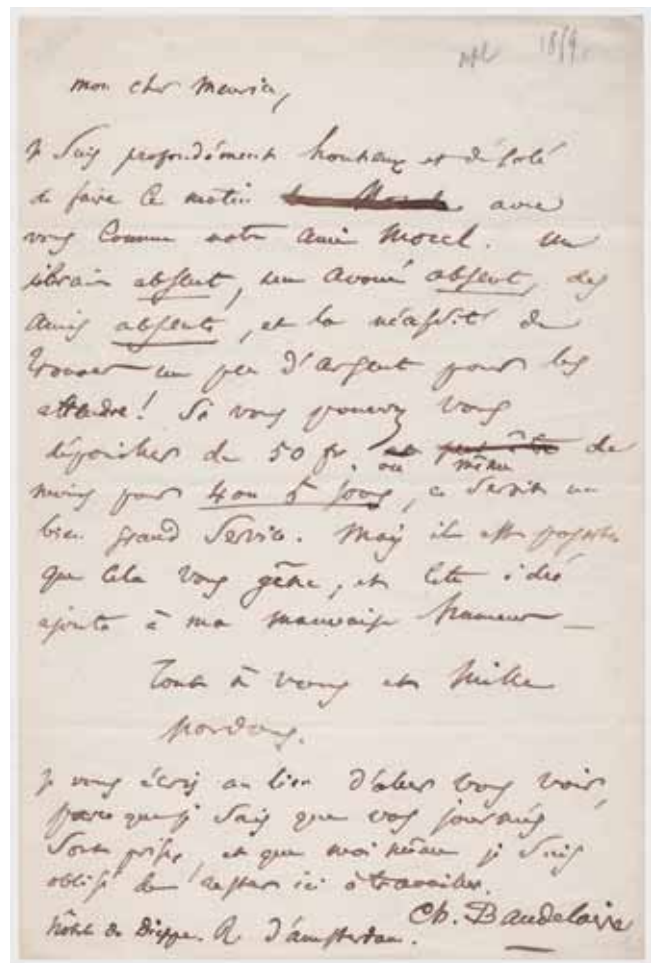 1859.
mon cher Meurice,
Je suis profondément honteux et désolé
de faire ce matin avec
vous comme notre ami Morel. Un
libraire absent, un avoué absent, des
amis absents, et la nécessité de
trouver un peu d'argent pour les
attendre! Si vous pouviez vous
dépouiller de 50 fr. ou même de
moins pour 4 ou 5 jours, ce serait un
bien grand service. Mais il est possible
que cela vous gêne, et cette idée
ajoute à ma mauvaise humeur —
Tout à vous et mille
pardons.
Je vous écris au lieu d'aller vous voir,
parce que je sais que vos journées
sont prises, et que moi même je suis
obligé de rester ici à travailler.
Ch. Baudelaire
hôtel de Dieppe. R. d'amsterdam.